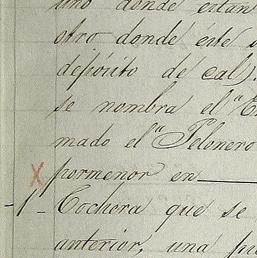 uno donde estan
otro donde esté
depósito de cal).
se nombra el "E
mado el "Pelonero
X pormenor en
-1- Cochera que se
anterior, una pu